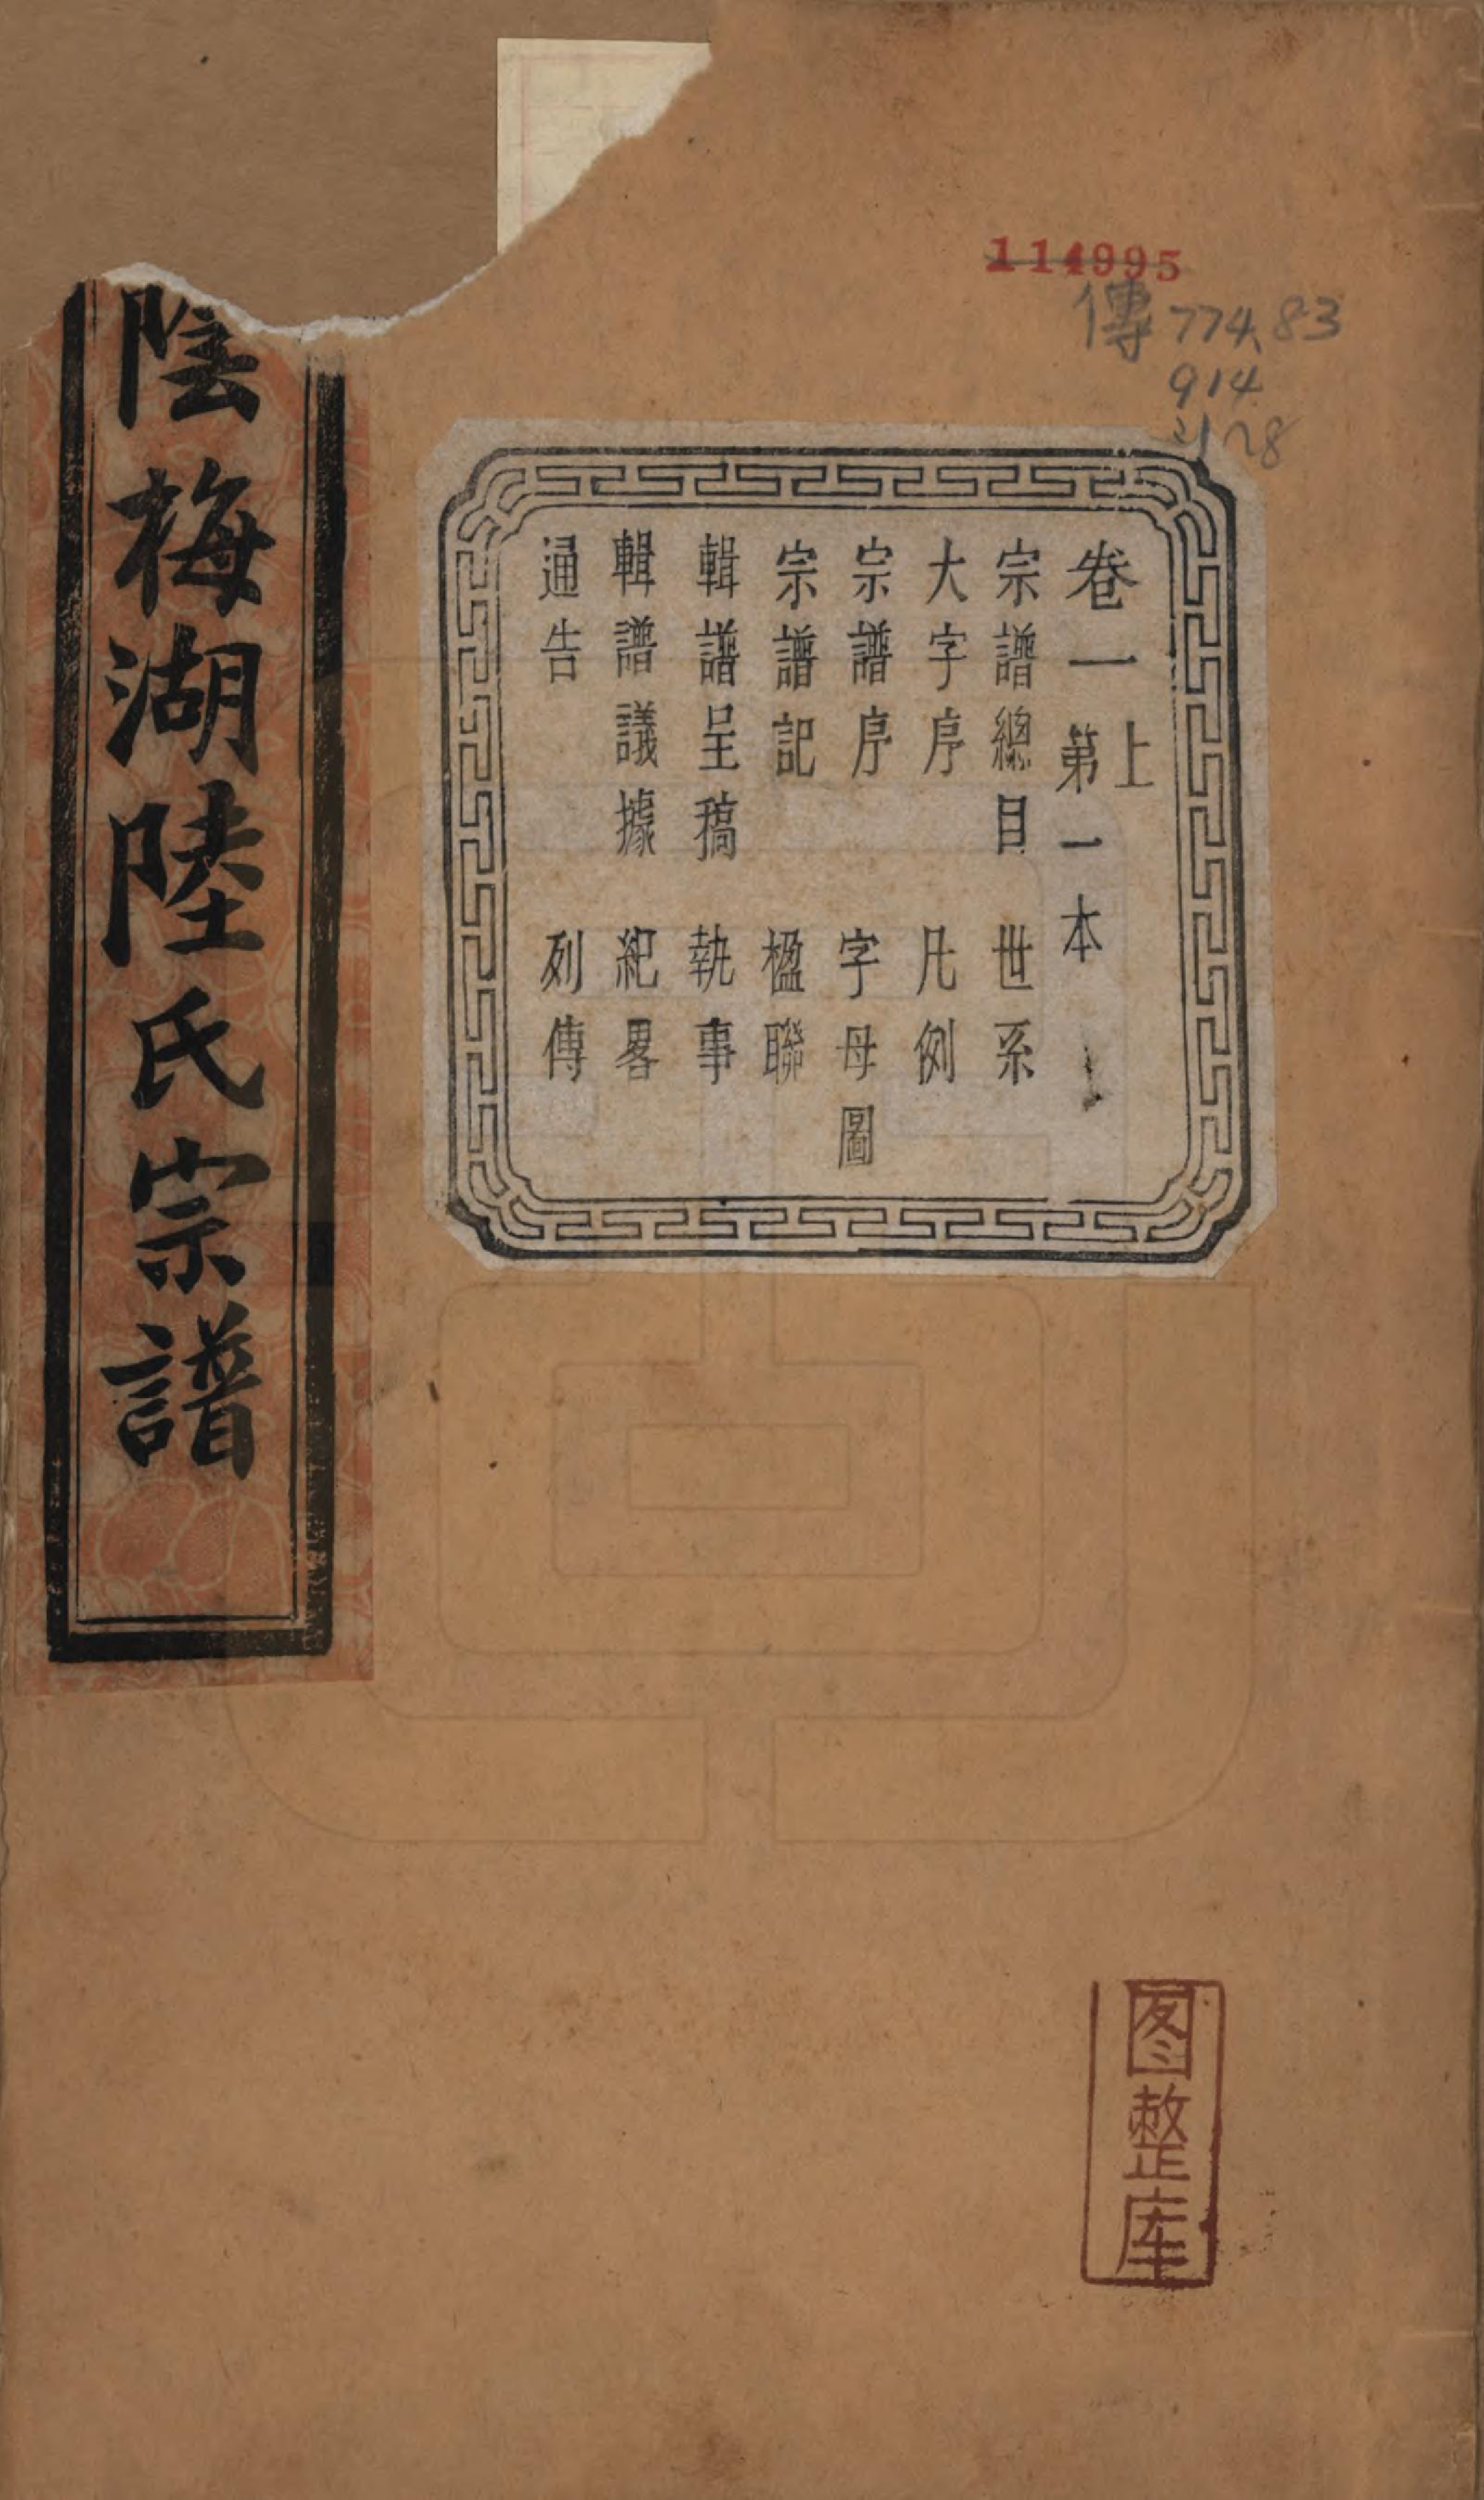 114995
傳 774.83
914
卷一上 第一本
宗譜總目 世系
大字序 凡例
宗譜序 字母圖
宗譜記 楹聯
輯譜呈稿 執事
輯譜議據 紀畧
通告 列傳
陰梅湖陸氏宗譜
图整库